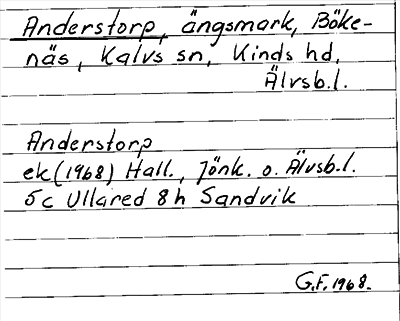 Anderstorp, ängsmark, Böke-
näs, Kalvs sn, Kinds hd,
Älvsb.l.
Anderstorp
ek (1968) Hall., Jönk. o. Älvsb.l.
5c Ullared 8h Sandvik
G.F. 1968.